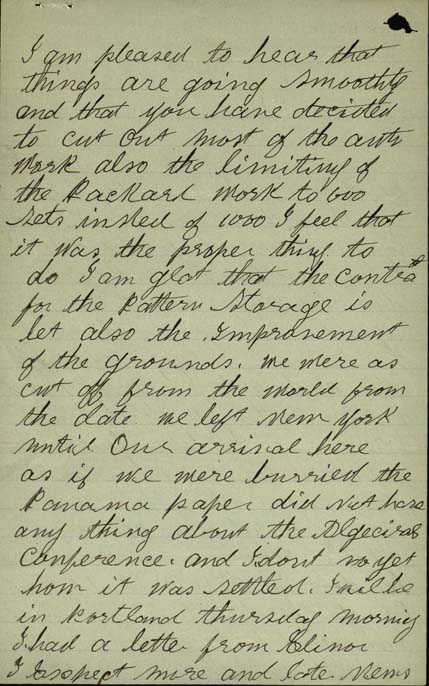 I am pleased to hear that
things are going smoothly
and that you have decided
to cut out most of the auto
work also the limiting of
the Packard work to 600
sets insted of 1000 I feel that
it was the proper thing to
do I am glat that the contract
for the Pattern Storage is
let also the Improvement
of the grounds. we were as
cut off from the world from
the date we left New York
until our arrival here
as if we were burried the
Panama paper did not have
any thing about the Algeciras
Conference. and I dont no yet
how it was settled. I will be
in Portland thursday morning
I had a letter from Elinor
I Exspect more and late News